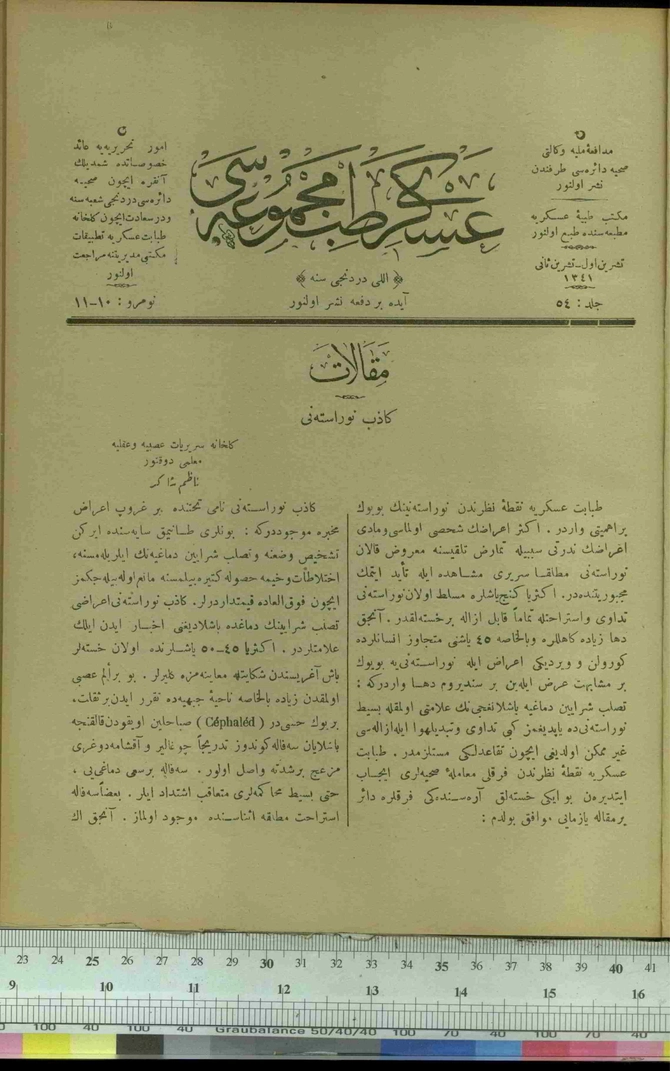 مدافعهٔ ملیه وکالتی
صحیه دائره‌سی طرفندن
نشر اولنور
مکتب طبیهٔ عسکریه
مطبعه‌سنده طبع اولنور
تشرین اول ـ تشرین ثانی
١٣٤١
جلد : ٥٤
عسکری طب مجموعه‌سی
﴿ اللی دردنجی سنه ﴾
آیده بر دفعه نشر اولنور
امور تحریریه‌یه عائد
خصوصاتده شمدیلك
آنقره ایچون صحیه
دائره‌سی دردنجی شعبه‌سنه
ودرسعادت ایچون کلخانه
طبابت عسکریه تطبیقات
مکتبی مدیریتنه مراجعت
اولنور
نومرو : ١٠–١١
مقالات
کاذب نوراسته‌نی
کلخانه سریریات عصبیه وعقلیه
معلمی دوقتور
ناظم شاکر
طبابت عسکریه نقطهٔ نظرندن نوراسته‌نینك بویوك
براهمیتی واردر . اکثر اعراضك شخصی اولماسی ومادی
اعراضك ندرتی سببیله تمارض تلقیسنه معروض قالان
نوراسته‌نی مطلقا سریری مشاهده ایله تأیید ایتمك
مجبوریتنده‌در. اکثریا کنج یاشلره مسلط اولان نوراسته‌نی
تداوی واستراحتله تماماً قابل ازاله برخسته‌لقدر. آنجق
دها زیاده کاهللره وبالخاصه ٤٥ یاشنی متجاوز انسانلرده
کورولن و ویردیکی اعراض ایله نوراسته‌نی‌یه بویوك
بر مشابهت عرض ایله‌ین بر سندیروم دها واردرکه :
تصلب شرایین دماغیه باشلانغیجی‌نك علامتی اولمقله بسیط
نوراسته‌نی‌ده یاپدیغمز کبی تداوی وتبدیلهوا ایله ازاله‌سی
غیر ممکن اولدیغی ایچون تقاعدلکی مستلزمدر . طبابت
عسکریه نقطهٔ نظرندن فرقلی معاملهٔ صحیه‌لری ایجاب
ایتدیره‌ن بو ایکی خسته‌لق آره‌سنده‌کی فرقلره دائر
برمقاله یازمایی موافق بولدم :
کاذب نوراسته‌نی نامی تحتنده بر غروپ اعراض
مخبره موجوددرکه : بونلری طانیمق سایه‌سنده ایرکن
تشخیص وضعنه وتصلب شرایین دماغیه‌نك ایلریله‌مسنه،
اختلاطات وخیمه حصوله کتیره‌بیلمسنه مانع اوله‌بیله‌جکمز
ایچون فوق العاده قیمتداردرلر. کاذب نوراسته‌نی اعراضی
تصلب شرایینك دماغده باشلادیغنی اخبار ایدن ایلك
علامتلردر . اکثریا ٤٥–٥٠ یاشلرنده اولان خسته‌لر
باش آغریسندن شکایتله معاینه‌مزه کلیرلر . بو برألم عصبی
اولمقدن زیاده بالخاصه ناحیهٔ جبهیه‌ده تقرر ایدن برثقلت،
بربوك حسی‌در ( Céphaléd ) صباحلین اویقودن قالقنجه
باشلایان سه‌فاله کوندوز تدریجاً چوغالیر و آقشامه‌دوغری
مزعج برشدته واصل اولور . سه‌فاله برسعی دماغی‌یی .
حتی بسیط محاکمه‌لری متعاقب اشتداد ایلر . بعضاً سه‌فاله
استراحت مطلقه اثناسنده موجود اولماز . آنجق اك
23 24 25 26 27 28 29 30 31 32 33 34 35 36 37 38 39 40 41
9 10 11 12 13 14 15 16
Graubalance 50/40/40